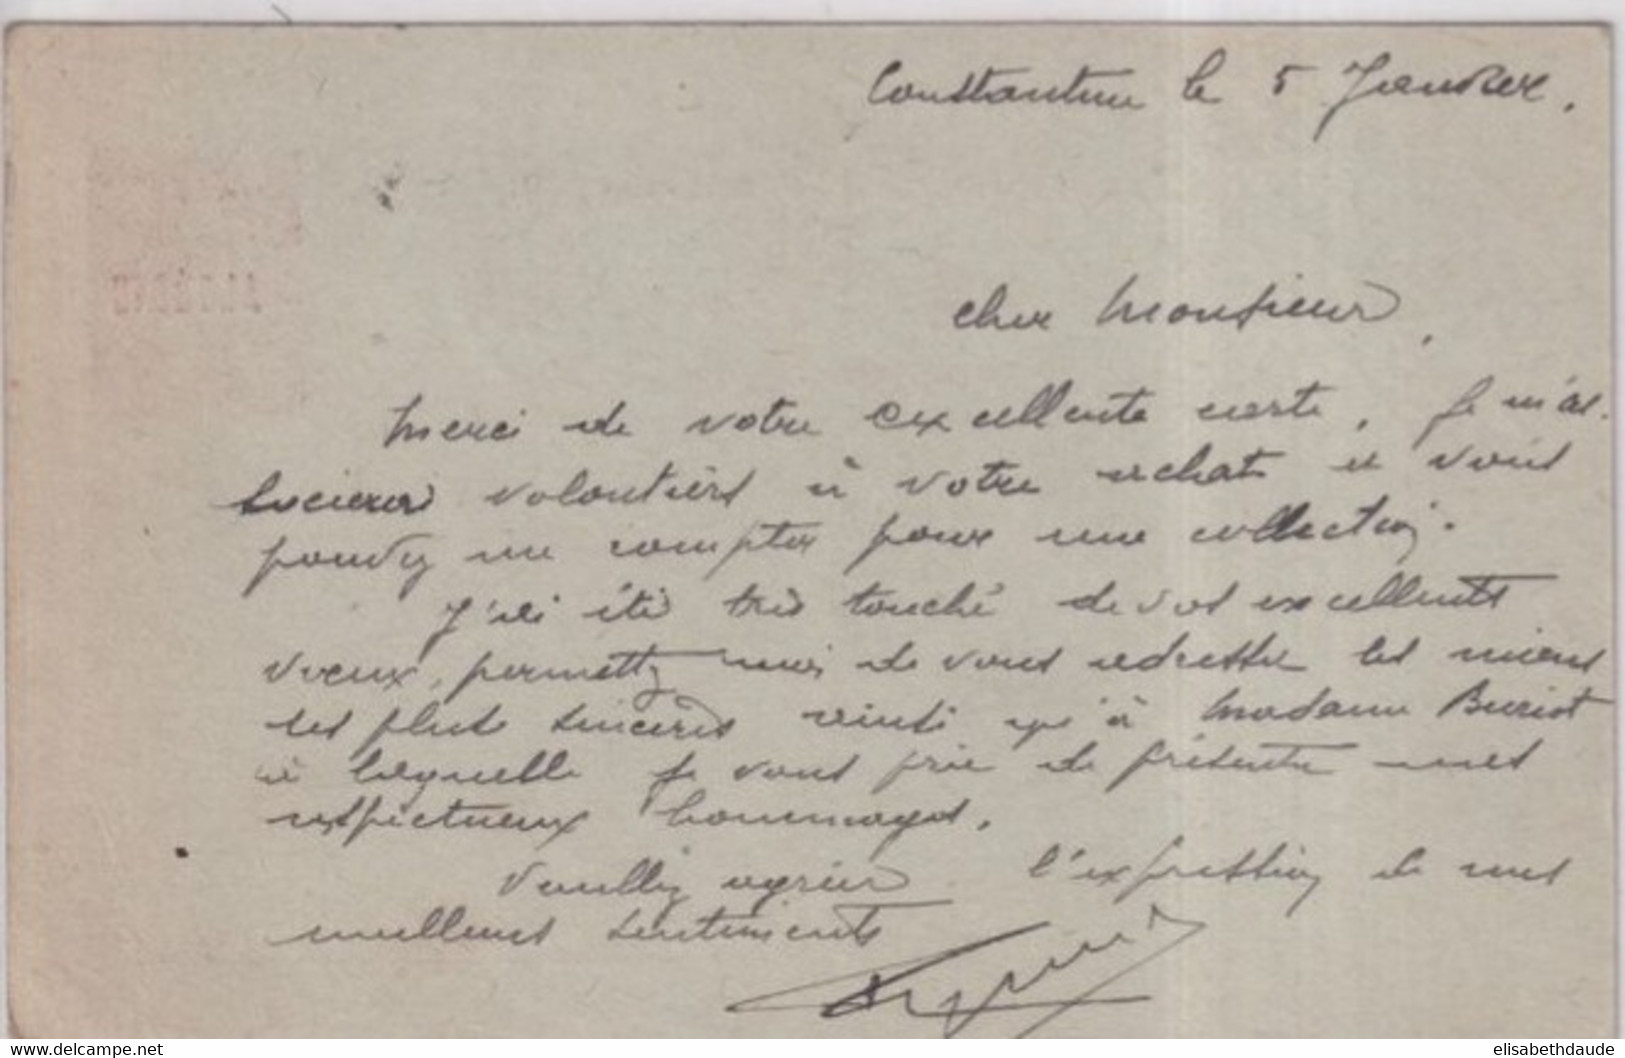 Constantine le 5 Janvier.
Cher Monsieur,
Merci de votre excellente carte. Je m'as-
socierai volontiers à votre achat et vous
pouvez me compter pour une collection.
J'ai été très touché de vos excellents
voeux, permettez moi de vous adresser les miens
les plus sincères ainsi qu'à Madame Buriot
à laquelle je vous prie de présenter mes
respectueux hommages.
Veuillez agréer l'expression de mes
meilleurs sentiments
www.delcampe.net
elisabethdaude